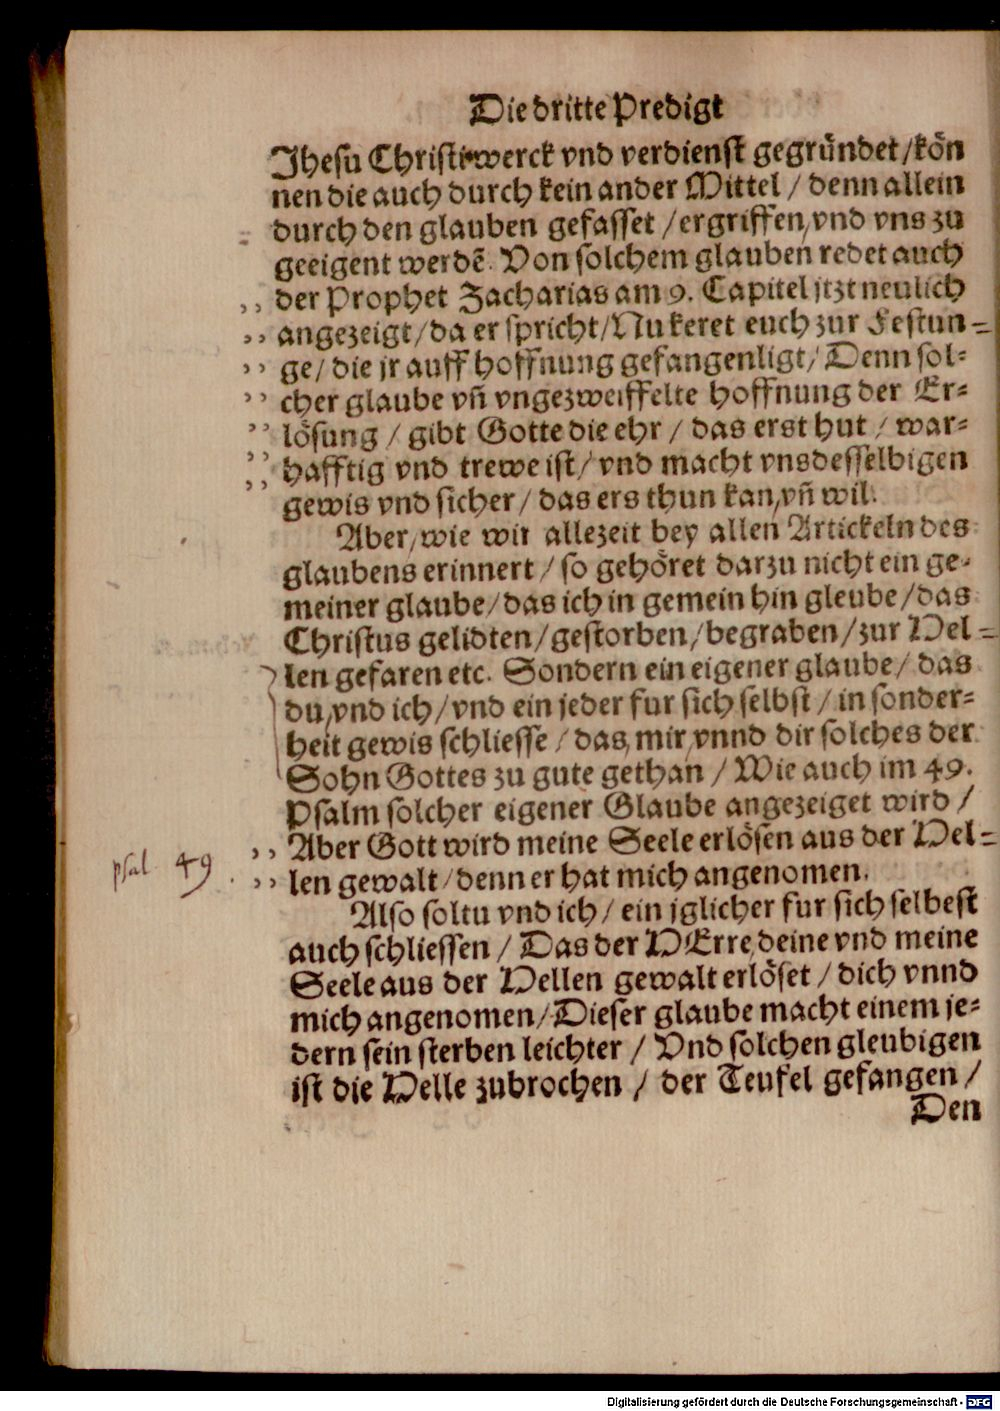 Die dritte Predigt
Jhesu Christi werck vnd verdienst gegründet / kön
nen die auch durch kein ander Mittel / denn allein
durch den glauben gefasset / ergriffen, vnd vns zu
geeigent werdẽ. Von solchem glauben redet auch
,, der Prophet Zacharias am 9. Capitel jtzt neulich
,, angezeigt / da er spricht / Nu keret euch zur Festun=
,, ge / die jr auff hoffnung gefangen ligt / Denn sol=
,, cher glaube vñ vngezweiffelte hoffnung der Er=
,, lösung / gibt Gotte die ehr / das erst hut / war=
,, hafftig vnd trewe ist / vnd macht vns desselbigen
,, gewis vnd sicher / das ers thun kan, vñ wil.
Aber, wie wir allezeit bey allen Artickeln des
glaubens erinnert / so gehöret darzu nicht ein ge=
meiner glaube / das ich in gemein hin gleube / das
Christus gelidten / gestorben / begraben / zur Hel=
len gefaren etc. Sondern ein eigener glaube / das
du, vnd ich / vnd ein jeder fur sich selbst / in sonder=
heit gewis schliesse / das, mir, vnnd dir solches der
Sohn Gottes zu gute gethan / Wie auch im 49.
Psalm solcher eigener Glaube angezeiget wird /
,, Aber Gott wird meine Seele erlösen aus der Hel=
psal 49. ,, len gewalt / denn er hat mich angenomen.
Also soltu vnd ich / ein jglicher fur sich selbest
auch schliessen / Das der HErre, deine vnd meine
Seele aus der Hellen gewalt erlöset / dich vnnd
mich angenomen / Dieser glaube macht einem je=
dern sein sterben leichter / Vnd solchen gleubigen
ist die Helle zubrochen / der Teufel gefangen /
Den
Digitalisierung gefördert durch die Deutsche Forschungsgemeinschaft - DFG